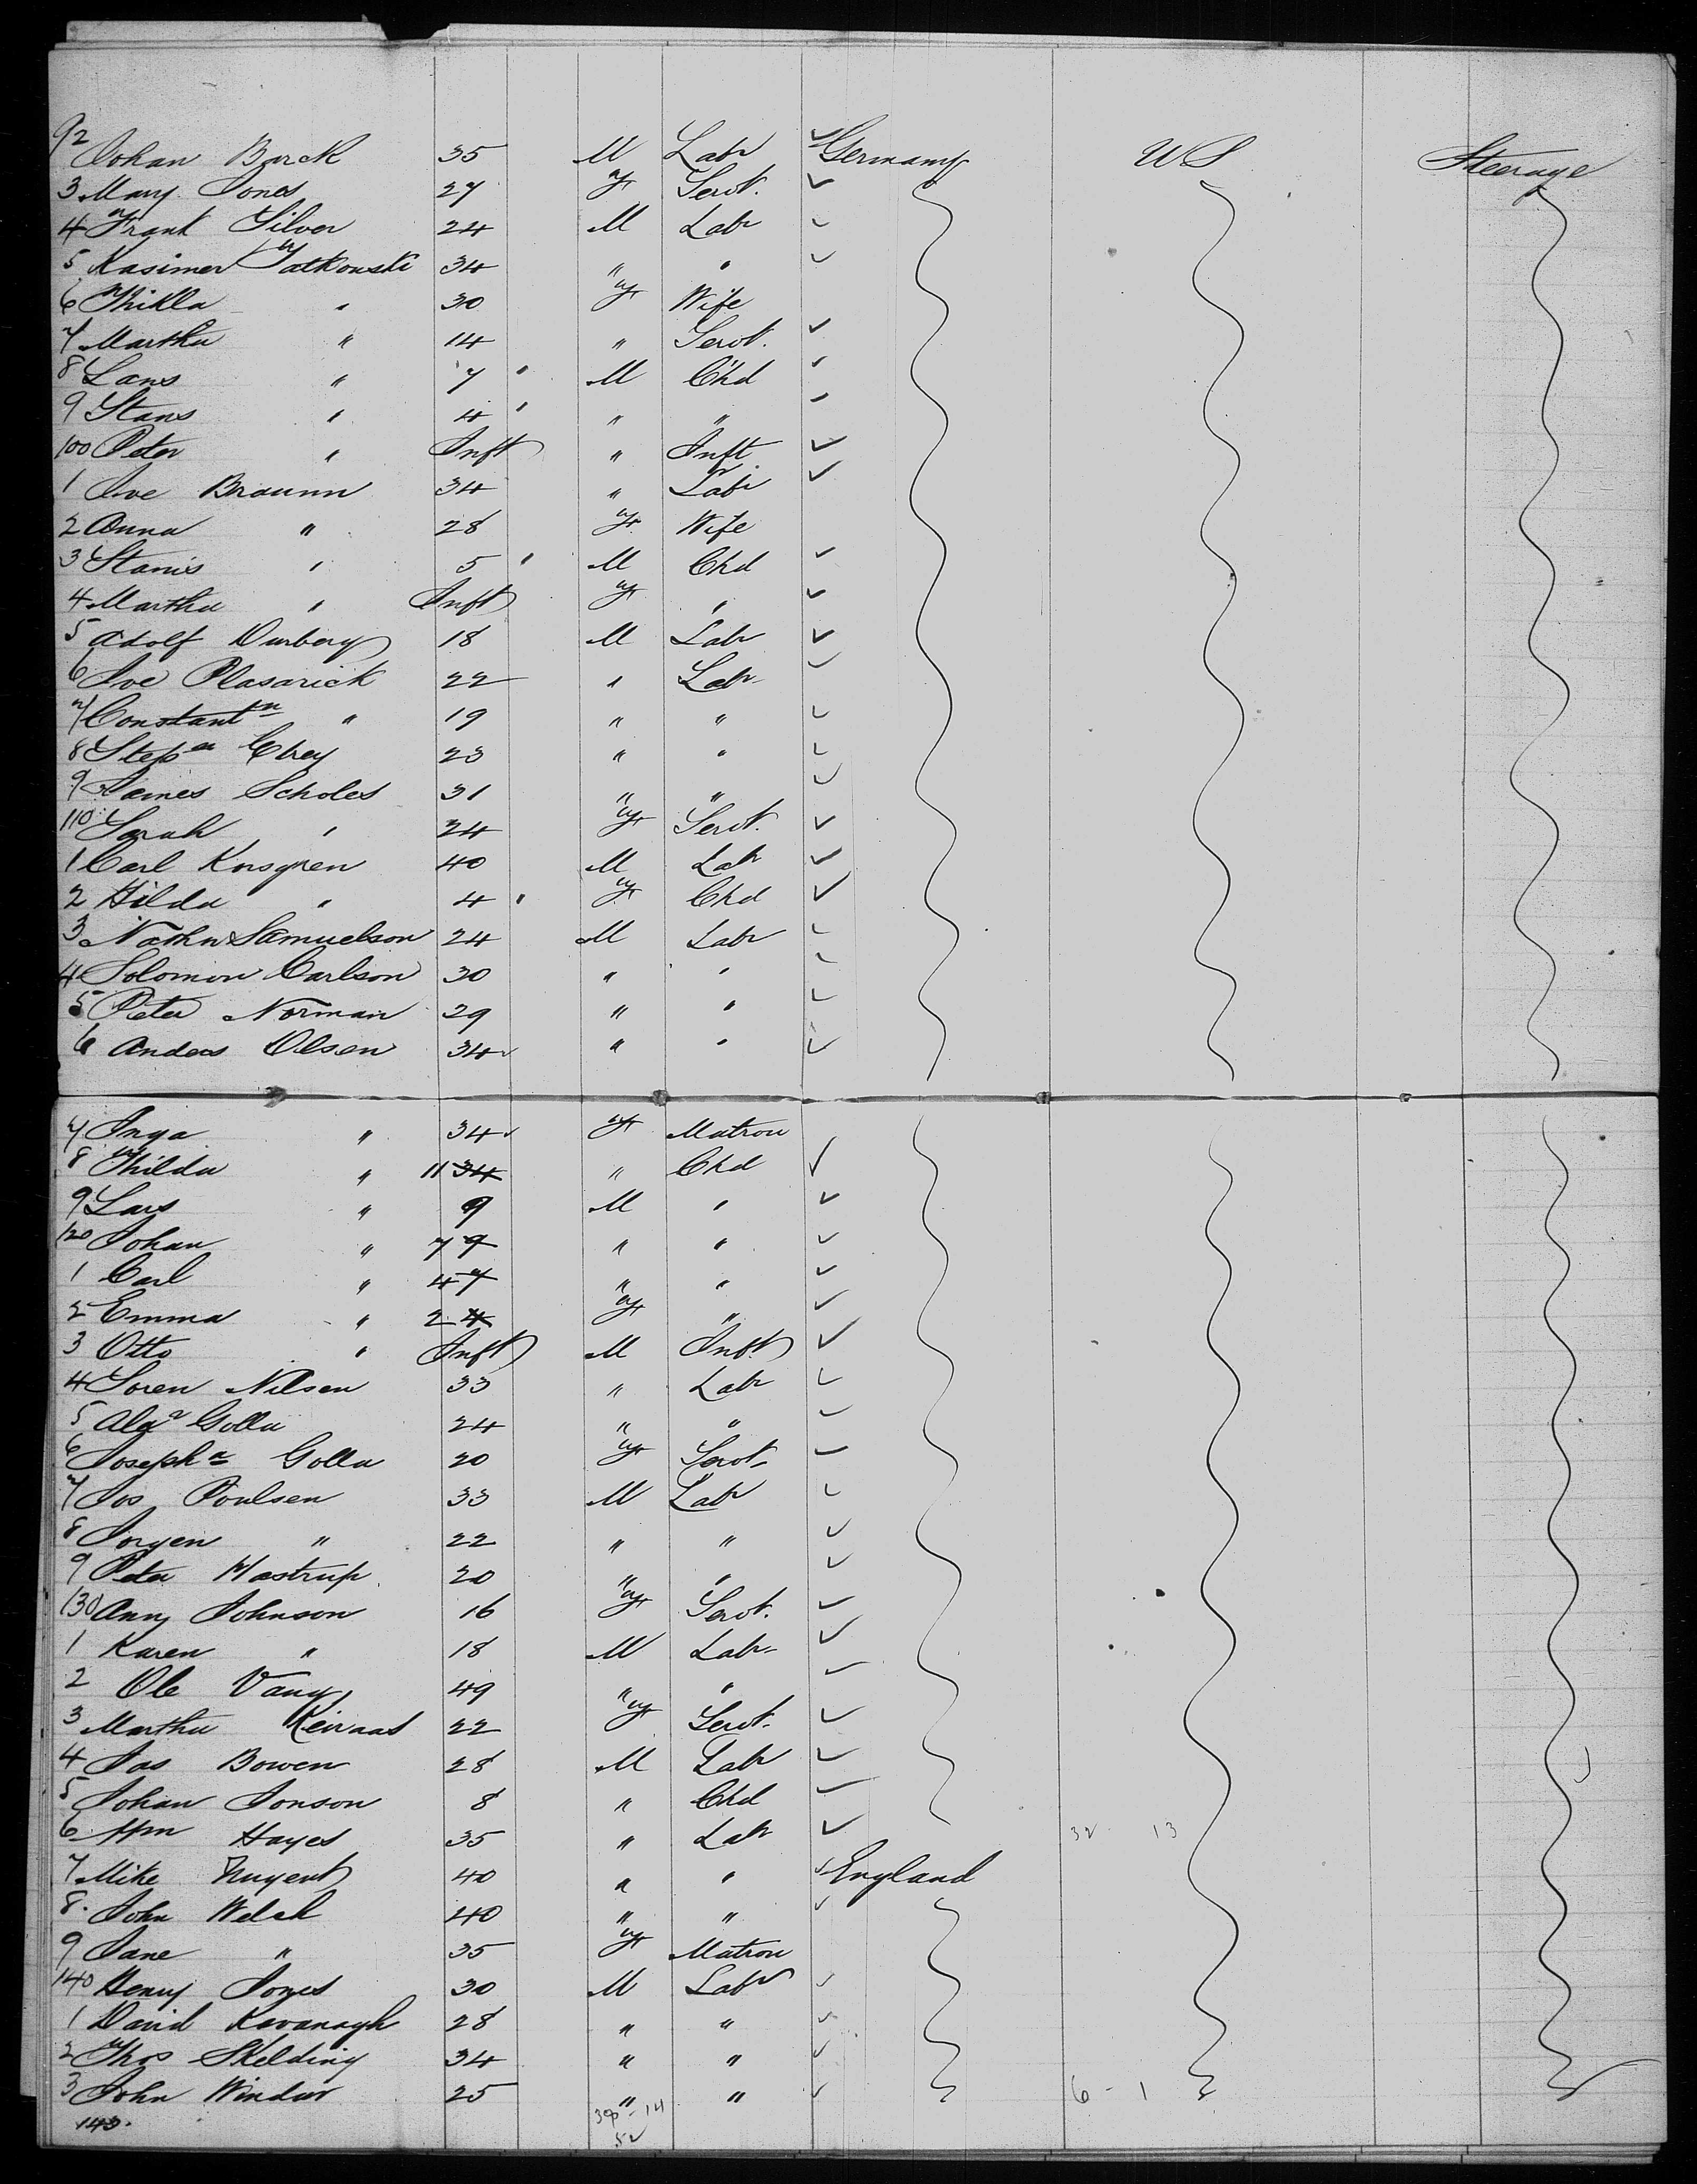 92 Johan Burck 35 M Labr Germany U S Steerage
3 Mary Jones 27 F Servt.
4 Frank Silver 24 M Labr
5 Kasimer Jatkouski 34 " "
6 Thikla " 30 F Wife
7 Martha " 14 " Servt.
8 Lans " 7 " M Chd
9 Stans " 4 " " "
100 Peter " Inft " Inft
1 Ive Braunn 34 " Labr
2 Anna " 28 F Wife
3 Stanis " 5 " M Chd
4 Martha " Inft F "
5 Adolf Durberg 18 M Labr
6 Ive Plasarick 22 " Labr
7 Constantn " 19 " "
8 Stepn 23 " "
9 James Scholes 31 " "
110 Sarah " 24 F Servt.
1 Carl Korsgren 40 M Labr
2 Hilda " 4 " F Chd
3 Nathn Samuelson 24 M Labr
4 Solomon Carlson 30 " "
5 Peter Norman 29 " "
6 Anders Olsen 34 " "
7 Inga " 34 F Matron
8 Thilda " 11 34 " Chd
9 Lars " 9 M "
120 Johan " 7 9 " "
1 Carl " 4 7 " "
2 Emma " 2 4 F "
3 Otto " Inft M Inft
4 Soren Nilsen 33 " Labr
5 Golla 24 " "
6 Josepha Golla 20 F Servt.
7 Jos Poulsen 33 M Labr
8 Jorgen " 22 " "
9 Peter Hastrup 20 " "
130 Anny Johnson 16 F Servt.
1 Karen " 18 M Labr
2 Ole Vang 49 " "
3 Martha 22 F Servt.
4 Jas Bowen 28 M Labr
5 Johan Jonson 8 " Chd
6 Wm Hayes 35 " Labr 32 13
7 Mike Nugent 40 " " England
8. John Welch 40 " "
9 Jane " 35 F Matron
140 Henry Jones 30 M Labr
1 David Kavanagh 28 " "
2 Thos Skelding 34 " "
3 John Windur 25 " " 6 - 1
143. 38 - 14
52